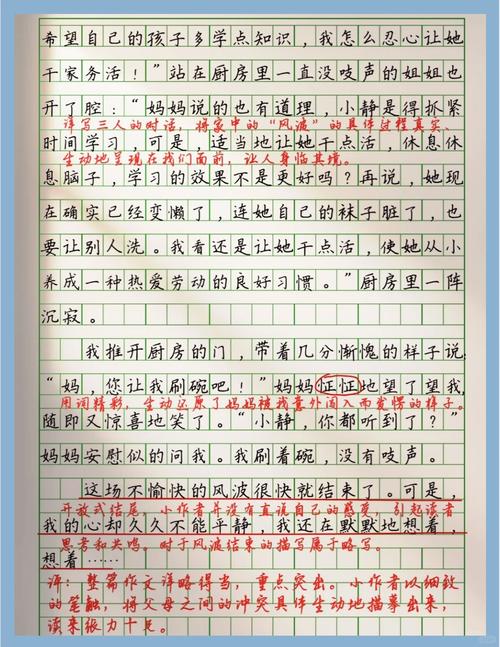 希望自己的孩子多学点知识，我怎么忍心让她
干家务活！”站在厨房里一直没吱声的姐姐也
开了腔：“妈妈说的也有道理，小静是得抓紧
详写三人的对话，将家中的“风波”的具体过程真实、
时间学习，可是，适当地让她干点活，休息休
生动地呈现在我们面前，让人身临其境。
息脑子，学习的效果不是更好吗？再说，她现
在确实已经变懒了，连她自己的袜子脏了，也
要让别人洗。我看还是让她干点活，使她从小
养成一种热爱劳动的良好习惯。”厨房里一阵
沉寂。
我推开厨房的门，带着几分惭愧的样子说：
“妈，您让我刷碗吧！”妈妈怔怔地望了望我，
用词精彩，生动还原了妈妈被我意外闯入而发愣的样子。
随即又惊喜地笑了。“小静，你都听到了？”
妈妈安慰似的问我。我刷着碗，没有吱声。
这场不愉快的风波很快就结束了。可是，
开放式结尾，小作者并没有直说自己的感受，引起读者
我的心却久久不能平静，我还在默默地想着，
思考和共鸣。对于风波结束的描写属于略写。
想着……
师：整篇作文详略得当，重点突出。小作者以细致
的笔触，将父母之间的冲突具体生动地描摹出来，
读来张力十足。